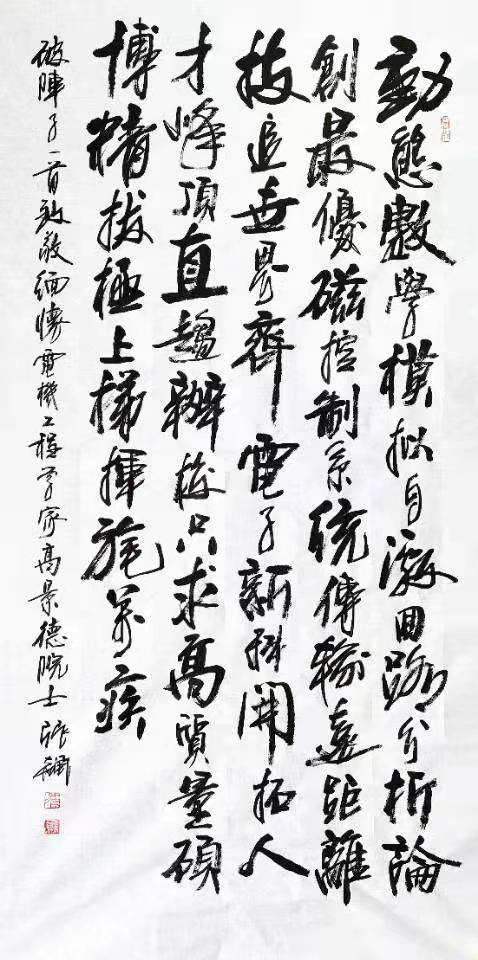 動態數學模拟自激回路分析論
創最優磁控制系統傳輸遠距離
技追世界齊電子新科開拓人
才峰頂直趨辦校只求高質量碩
博精拔極上梯揮旄萬疾
破陣子一首致敬緬懷電機工程学家高景德院士